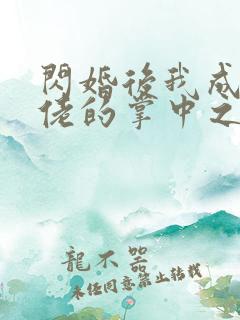 閃婚後我成
佬的掌中之
龍不器
未經同意禁止轉載